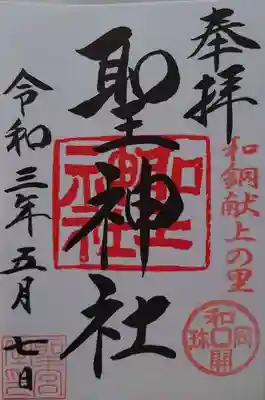 奉拝
和銅献上の里
和同開珎
聖神社
聖神社
令和三年五月七日